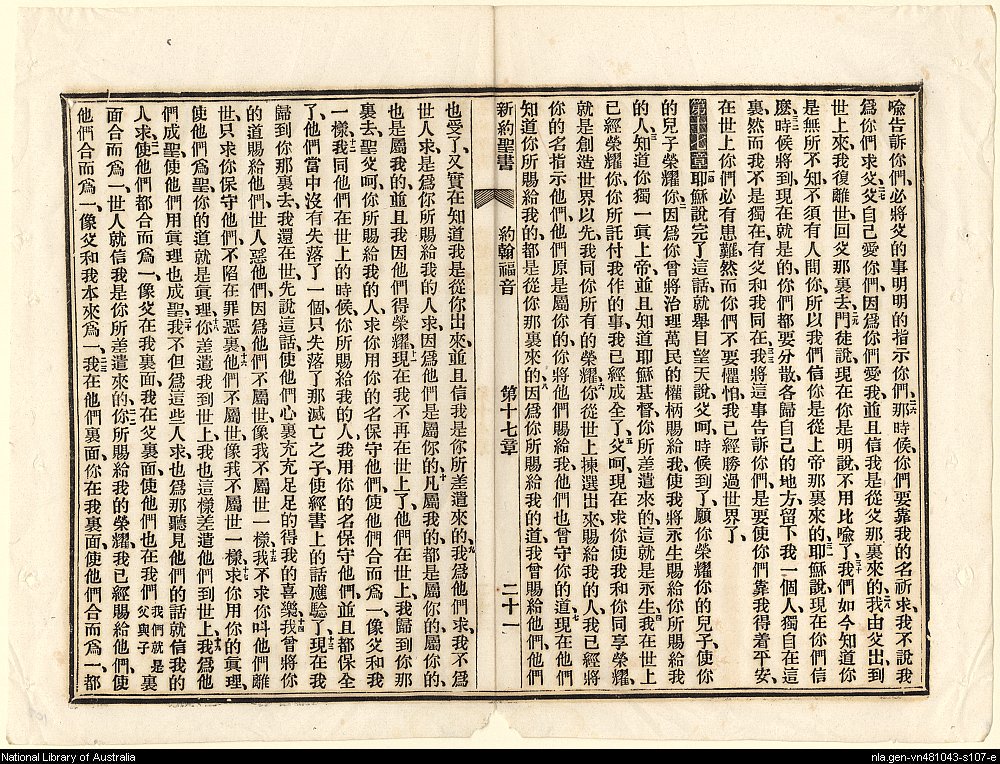 喩告訴你們、必將父的事明明的指示你們、二六那時候、你們要靠我的名祈求、我不說我
爲你們求父、二七父自己愛你們、因爲你們愛我、並且信我是從父那裏來的、二八我由父出、到
世上來、我復離世、回父那裏去、二九門徒說、現在你是明說、不用比喩了、三十我們如今知道你
是無所不知、不須有人問你、所以我們信你是從上帝那裏來的、三一耶穌說、現在你們信
麽、三二時候將到、現在就是的、你們都要分散、各歸自己的地方、留下我一個人、獨自在這
裏、然而我不是獨在、有父和我同在、三三我將這事告訴你們、是要使你們靠我得着平安、
在世上你們必有患難、然而你們不要懼怕、我已經勝過世界了、
第十七章一耶穌說完了這話、就舉目望天說、父呵、時候到了、願你榮耀你的兒子、使你
的兒子榮耀你、二因爲你曾將治理萬民的權柄賜給我、使我將永生賜給你所賜給我
的人、三知道你獨一眞上帝、並且知道耶穌基督、你所差遣來的、這就是永生、四我在世上
已經榮耀你、你所託付我作的事、我已經成全了、五父呵、現在求你使我和你同享榮耀、
就是創造世界以先、我同你所有的榮耀、六你從世上揀選出來賜給我的人、我已經將
你的名指示他們、他們原是屬你的、你將他們賜給我、他們也曾守你的道、七現在他們
知道你所賜給我的、都是從你那裏來的、八因爲你所賜給我的道、我曾賜給他們、他們
新約聖書 約翰福音 第十七章 二十一
也受了、又實在知道我是從你出來、並且信我是你所差遣來的、九我爲他們求、我不爲
世人求、是爲你所賜給我的人求、因爲他們是屬你的、十凡屬我的、都是屬你的、屬你的、
也是屬我的、並且我因他們得榮耀、十一現在我不再在世上了、他們在世上、我歸到你那
裏去、聖父呵、你所賜給我的人、求你用你的名保守他們、使他們合而爲一、像父和我
一樣、十二我同他們在世上的時候、你所賜給我的人、我用你的名保守他們、並且都保全
了、他們當中沒有失落了一個、只失落了那滅亡之子、使經書上的話應驗了、十三現在我
歸到你那裏去、我還在世、先說這話、使他們心裏充充足足的得我的喜樂、十四我曾將你
的道賜給他們、世人惡他們、因爲他們不屬世、像我不屬世一樣、十五我不求你叫他們離
世、只求你保守他們、不陷在罪惡裏、十六他們不屬世、像我不屬世一樣、十七求你用你的眞理、
使他們爲聖、你的道就是眞理、十八你差遣我到世上、我也這樣差遣他們到世上、十九我爲他
們成聖、使他們用眞理也成聖、二十我不但爲這些人求、也爲那聽見他們的話就信我的
人求、二一使他們都合而爲一、像父在我裏面、我在父裏面、使他們也在我們我們就是父與子裏
面合而爲一、世人就信我是你所差遣來的、二二你所賜給我的榮耀、我已經賜給他們、使
他們合而爲一、像父和我本來爲一、二三我在他們裏面、你在我裏面、使他們合而爲一、都
National Library of Australia
nla.gen-vn481043-s107-e